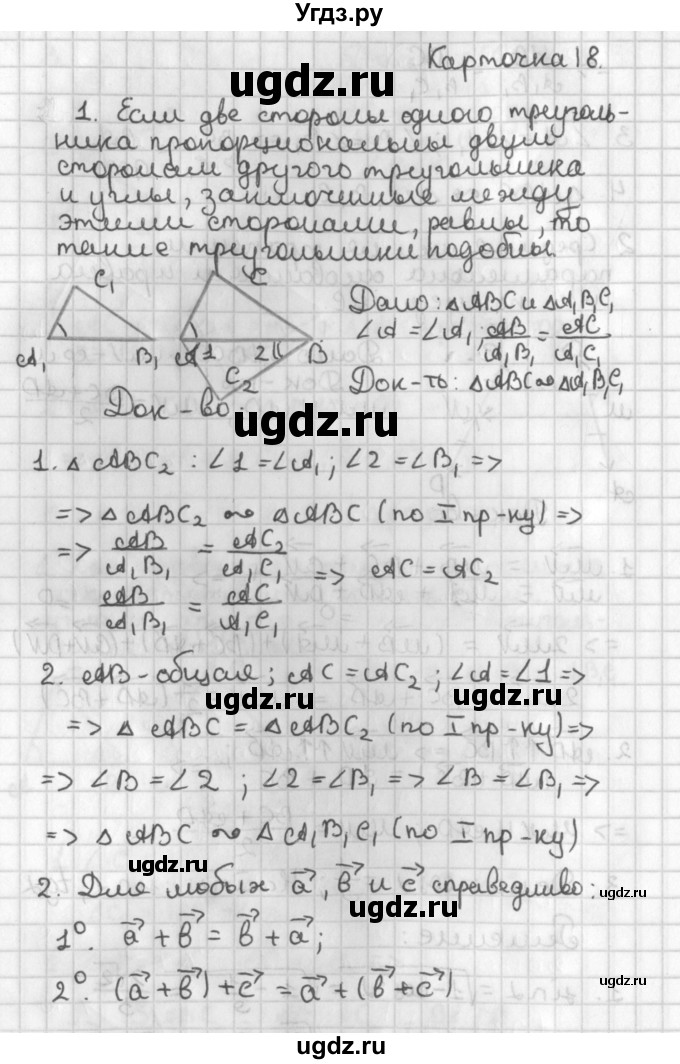 Угдз.ру
Карточка 18.
ugdz.ru
1. Если две стороны одного треуголь-
ника пропорциональны двум
сторонам другого треугольника
и углы, заключенные между
этими сторонами, равны, то
такие треугольники подобны.
ugdz.ru
C₁
C
A₁
B₁
A
1
2
B
C₂
Дано: △ABC и △A₁B₁C₁
∠A = ∠A₁; AB/A₁B₁ = AC/A₁C₁
Док-ть: △ABC ∾ △A₁B₁C₁
Док-во:
ugdz.ru
1. △ABC₂ : ∠1 = ∠A₁; ∠2 = ∠B₁ =>
ugdz.ru
=> △ABC₂ ∾ △ABC (по I пр-ку) =>
=> AB/A₁B₁ = AC₂/A₁C₁
=> AC = AC₂
AB/A₁B₁ = AC/A₁C₁
ugdz.ru
2. AB - общая; AC = AC₂; ∠A = ∠1 =>
ugdz.ru
ugdz.ru
=> △ABC = △ABC₂ (по I пр-ку) =>
=> ∠B = ∠2; ∠2 = ∠B₁ => ∠B = ∠B₁ =>
=> △ABC ∾ △A₁B₁C₁ (по I пр-ку)
ugdz.ru
2. Для любых a⃗, b⃗ и c⃗ справедливо:
ugdz.ru
1°. a⃗ + b⃗ = b⃗ + a⃗;
ugdz.ru
2°. (a⃗ + b⃗) + c⃗ = a⃗ + (b⃗ + c⃗)
ugdz.ru